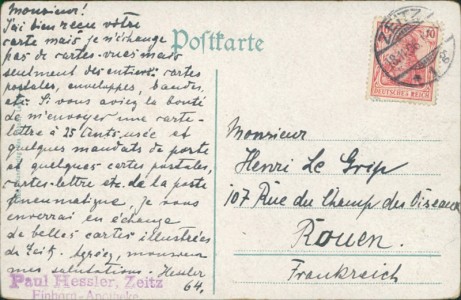 Monsieur!
J'ai bien reçu vôtre
carte mais je n'échange
pas de cartes-vues mais
seulment des entiers: cartes
postales, enveluppes, bandes,
etc. Si vous aviez la bonté
de m'envoyer une carte-
lettre à 25 cents usée et
quelques mandats de poste
et quelques cartes postales,
cartes-lettre etc. de la poste
pneumatique, je vous
enverrai en échange
de belles cartes illustrées
de Zeitz. Agréez, monsieur
mes salutations. Hessler
64.
Paul Hessler, Zeitz
Einhorn-Apotheke
Postkarte
ZEITZ
10
DEUTSCHES REICH
Monsieur
Henri Le Grip
107 Rue du Champ des Oiseaux
Rouen.
Frankreich